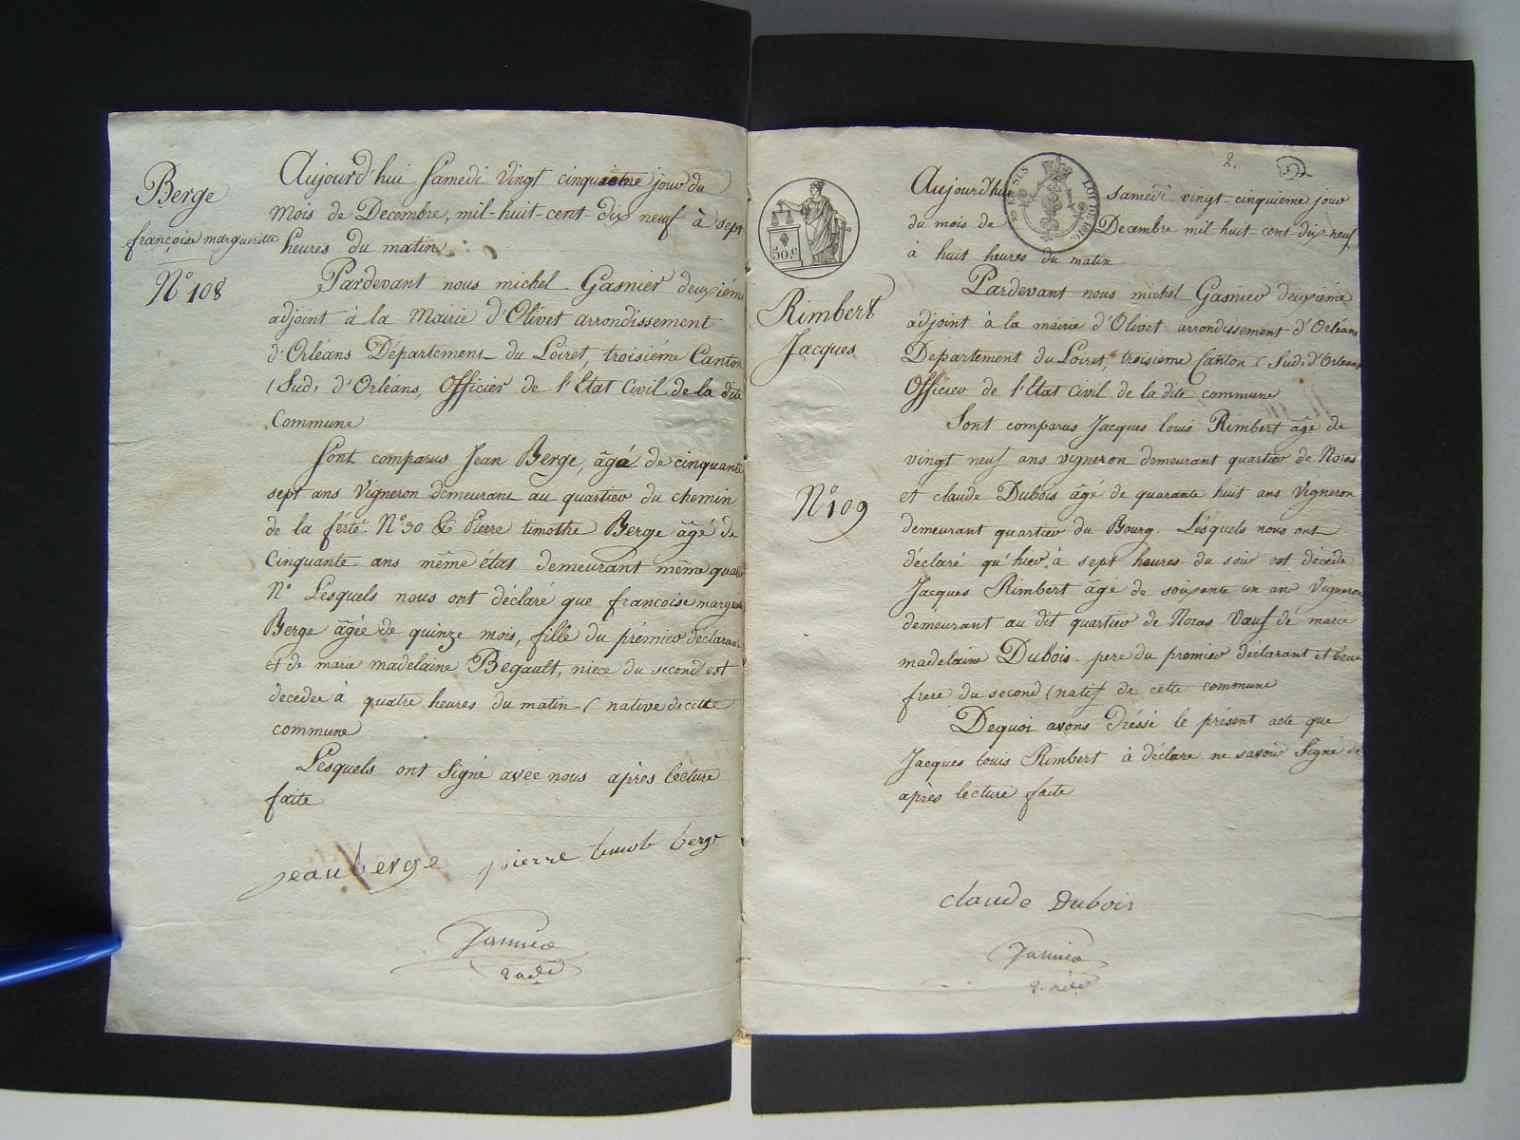 Berge
françoise marguerite
N° 108
Aujourd'hui Samedi vingt cinquieme jour du
mois de Decembre, mil-huit-cent dix neuf à sept
heures du matin
Pardevant nous michel Gasnier deuxiéme
adjoint à la Mairie d'Olivet arrondissement
d'Orléans Département du Loiret, troisiéme Canton
(Sud) d'Orléans, Officier de l'État Civil de la dite
Commune
Sont comparus Jean Berge, âgé de cinquante
sept ans Vigneron demeurant au quartier du chemin
de la ferté N° 30 & Pierre timothe Berge âgé de
Cinquante ans même état demeurant même
N° Lesquels nous ont déclaré que françoise
Berge âgée de quinze mois, fille du prémier déclarant
et de marie madelaine Begault, niece du second est
decedée à quatre heures du matin (native de cette
commune
Lesquels ont Signé avec nous après lecture
faite
jean berge pierre berge
2.
50 c
Rimbert
Jacques
N° 109
Aujourd'hui samedi vingt cinquième jour
du mois de Decembre mil huit cent dix neuf
à huit heures du matin
Pardevant nous michel Gasnier deuxiéme
adjoint à la mairie d'Olivet arrondissement d'Orléans
Département du Loiret, troisiéme Canton (Sud) d'Orleans
Officier de l'Etat Civil de la dite commune
Sont comparus Jacques louis Rimbert âgé de
vingt neuf ans vigneron demeurant quartier de
et claude Dubois âgé de quarante huit ans Vigneron
demeurant quartier du Bourg. Lesquels nous ont
déclaré qu'hier à sept heures du soir est décédé
Jacques Rimbert âgé de soixante un an Vigneron
demeurant au dit quartier de Veuf de marie
madelaine Dubois pere du premier déclarant et beau
frere du second (natif de cette commune
Dequoi avons Dressé le présent acte que
Jacques louis Rimbert à déclaré ne savoir Signé de
après lecture faite
claude Dubois